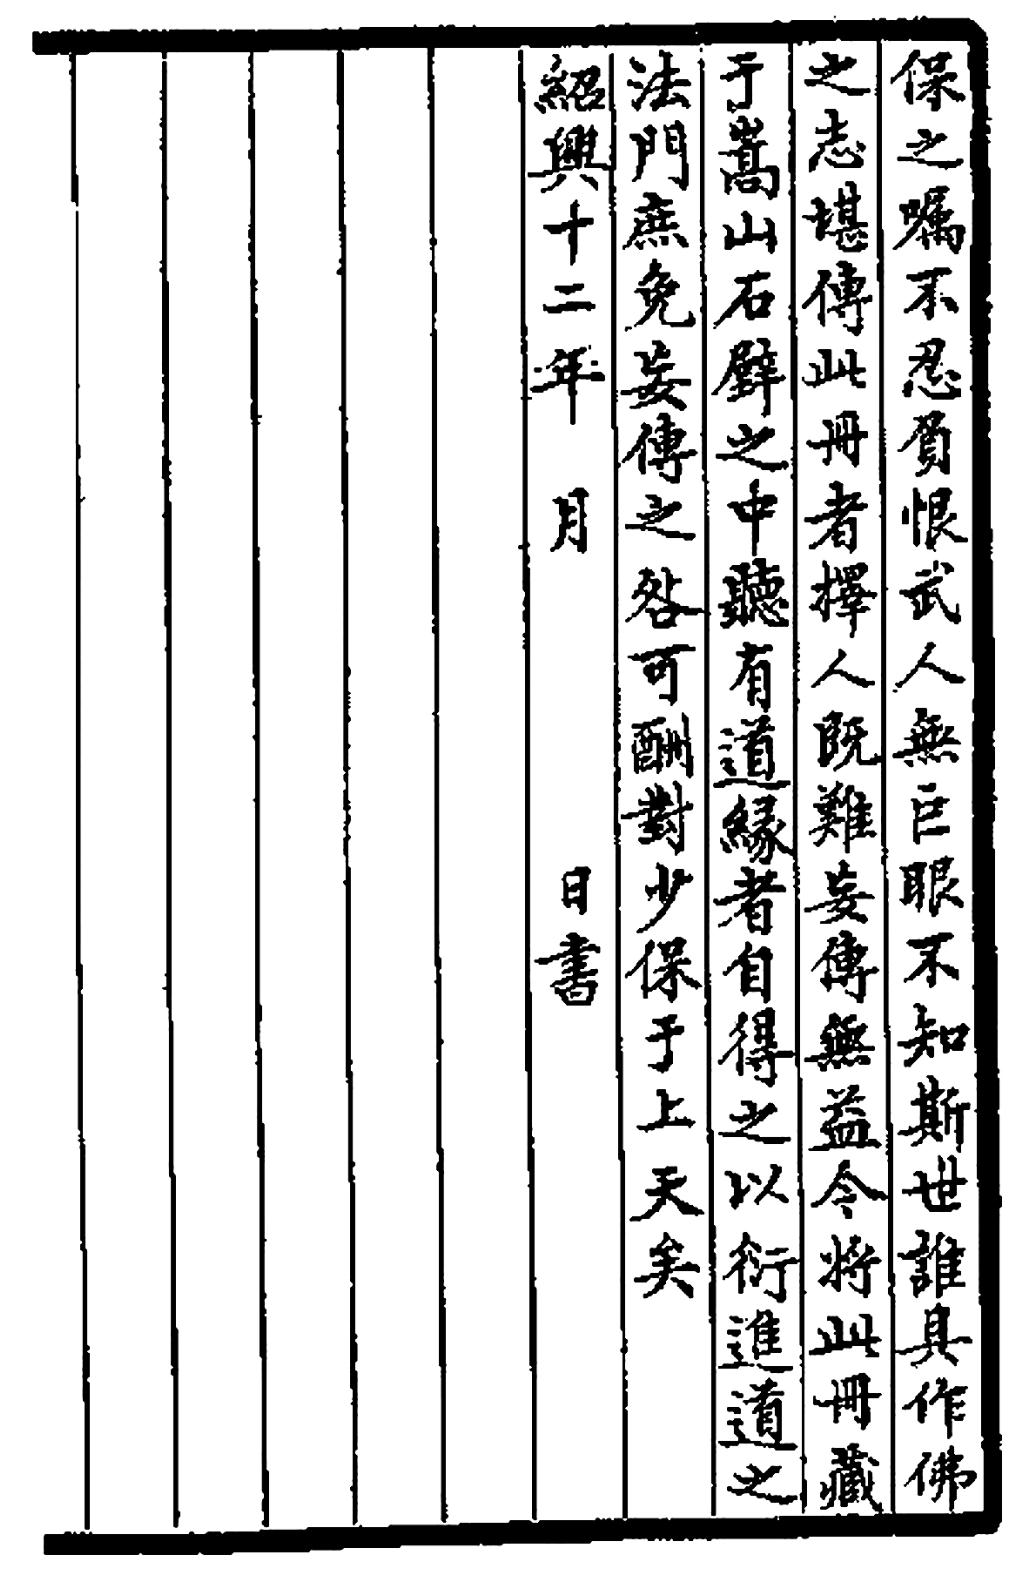 保之嘱不忍負恨武人無巨眼不知斯世誰具作佛
之志堪傳此冊者擇人既難妄傳無益今將此冊藏
于嵩山石壁之中聽有道緣者自得之以衍進道之
法門庶免妄傳之咎可酬對少保于上天矣
紹興十二年 月 日書